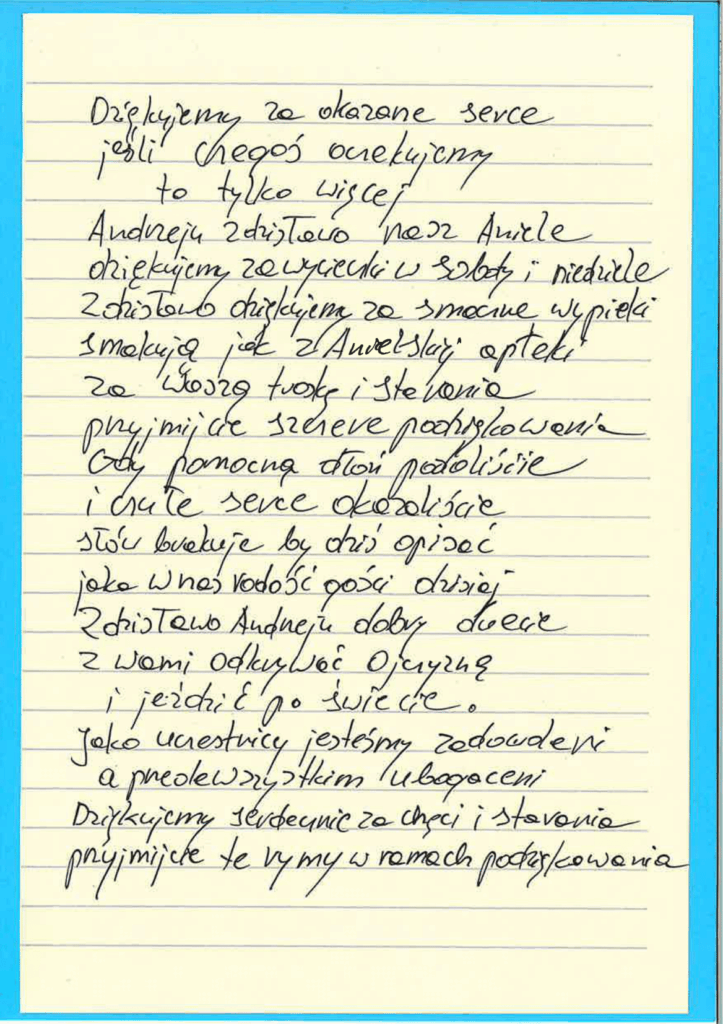 Dziękujemy za okazane serce
jeśli czegoś oczekujemy
to tylko więcej
Andrzeju Zdzisławo nasz Aniele
dziękujemy za wycieczki w soboty i niedziele
Zdzisławo dziękujemy za smaczne wypieki
smakują jak z Anielskiej apteki
za Waszą troskę i starania
przyjmijcie szczere podziękowania
Gdy pomocną dłoń podaliście
i czułe serce okazaliście
słów brakuje by dziś opisać
jaka w nas radość gości dzisiaj
Zdzisławo Andrzeju dobry duecie
z wami odkrywać Ojczyznę
i jeździć po świecie.
Jako uczestnicy jesteśmy zadowoleni
a przedewszystkim ubogaceni
Dziękujemy serdecznie za chęci i starania
przyjmijcie te rymy w ramach podziękowania